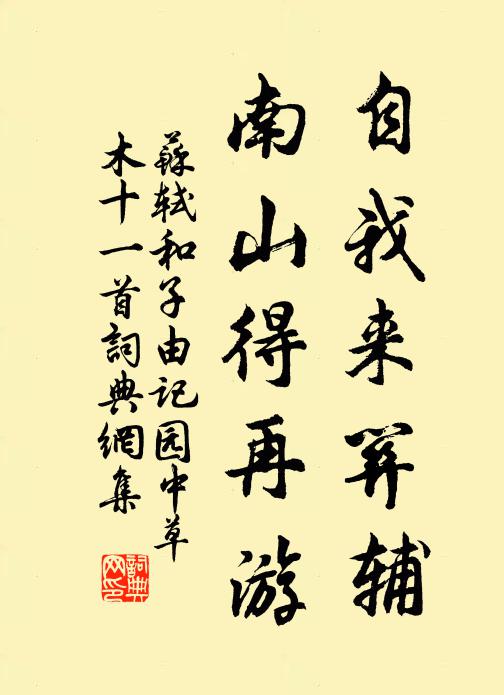 自我来关辅
南山得再游
蘇軾和子由记园中草
木十一首詞典網集
詞典
网印